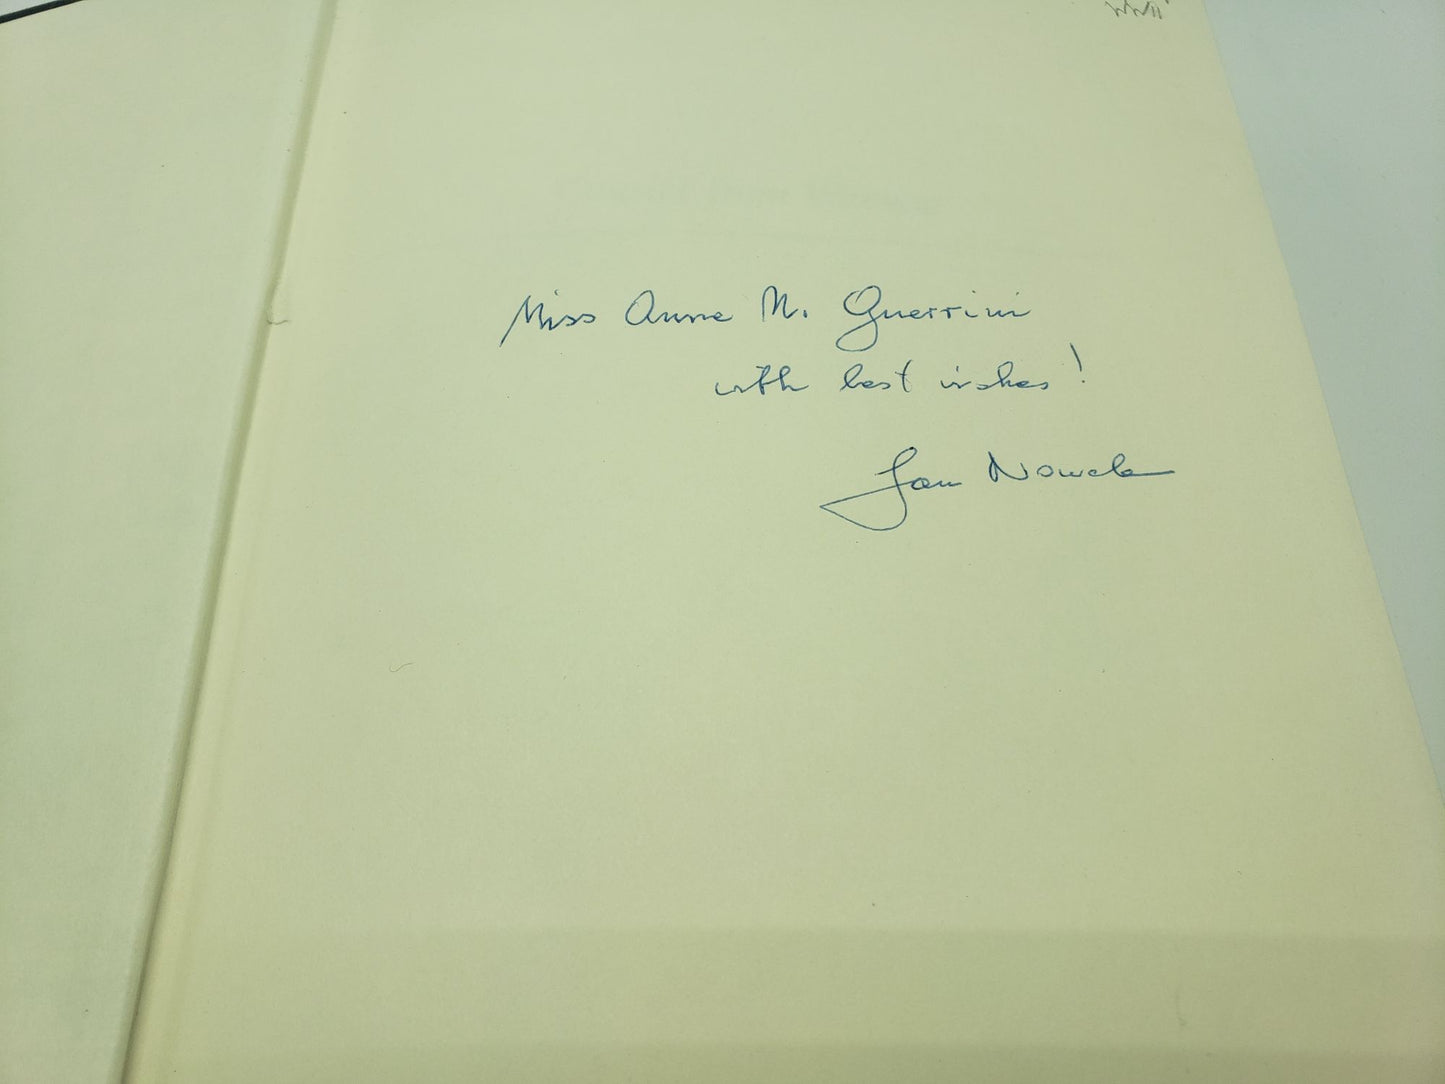 WWII
Miss Anne M. Guerrini
with best wishes!
Jan Nowak